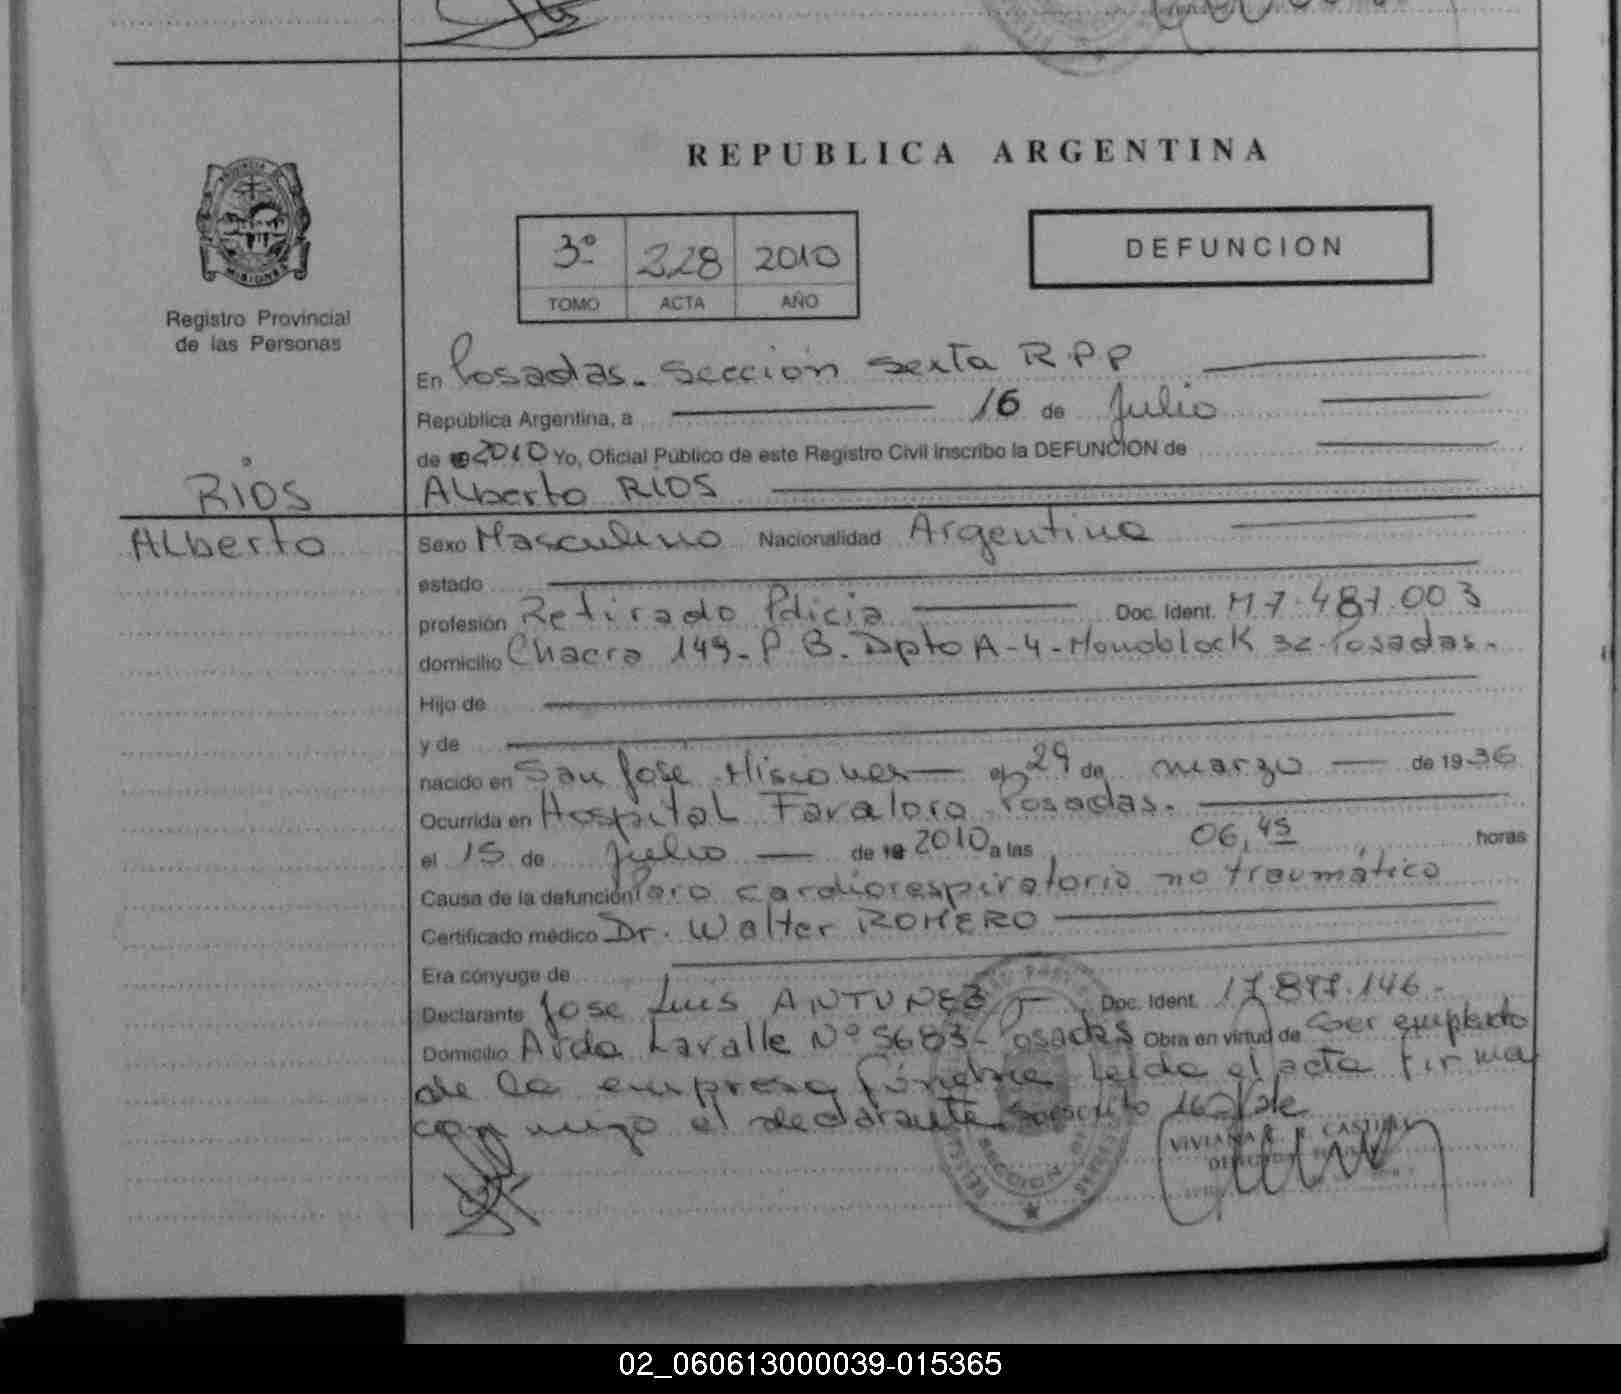 REPUBLICA ARGENTINA
MISIONES
3º 228 2010
TOMO ACTA AÑO
DEFUNCION
Registro Provincial
de las Personas
En Posadas. Sección Sexta R.P.P
República Argentina, a 16 de Julio
de 2010 Yo, Oficial Público de este Registro Civil inscribo la DEFUNCION de
RIOS
Alberto RIOS
Alberto
Sexo Masculino Nacionalidad Argentina
estado
profesión Retirado Policia Doc. Ident. M 7.487.003
domicilio Chacra 149-P B. Dpto A-4-Monoblock 32-Posadas-
Hijo de
y de
nacido en San Jose Misiones el 29 de marzo de 1936
Ocurrida en Hospital Favaloro Posadas.
el 15 de Julio de 19 2010 a las 06,45 horas
Causa de la defunción Paro cardiorespiratorio no traumático
Certificado médico Dr. Walter ROMERO
Era cónyuge de
Declarante Jose Luis ANTUNEZ Doc. Ident. 17.897.146-
Domicilio Avda Lavalle Nº 5683-Posadas Obra en virtud de ser empleado
de la empresa fúnebre Leida el acta firma
conmigo el declarante.
02_060613000039-015365